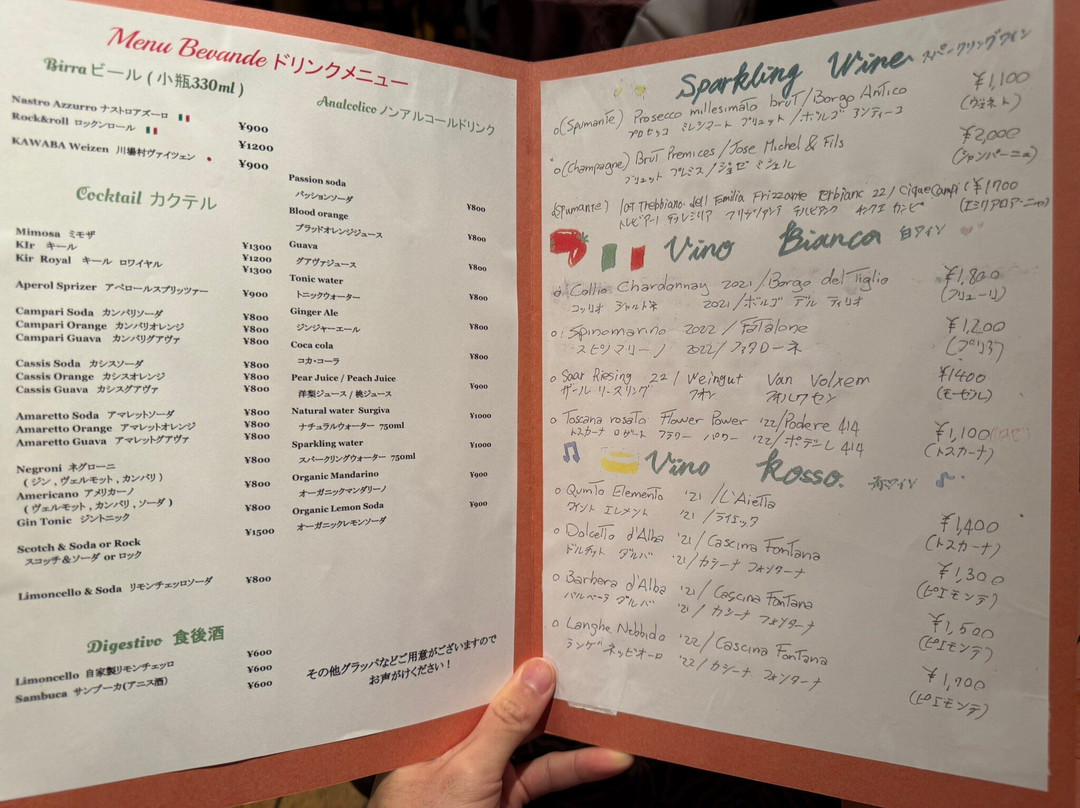 Menu Bevande ドリンクメニュー
Birra ビール ( 小瓶330ml )
Nastro Azzurro ナストロアズーロ ¥900
Rock&roll ロックンロール ¥1200
KAWABA Weizen 川場村ヴァイツェン ¥900
Cocktail カクテル
Mimosa ミモザ ¥1300
KIr キール ¥1200
Kir Royal キール ロワイヤル ¥1300
Aperol Sprizer アペロールスプリッツァー ¥900
Campari Soda カンパリソーダ ¥800
Campari Orange カンパリオレンジ ¥800
Campari Guava カンパリグアヴァ ¥800
Cassis Soda カシスソーダ ¥800
Cassis Orange カシスオレンジ ¥800
Cassis Guava カシスグアヴァ ¥800
Amaretto Soda アマレットソーダ ¥800
Amaretto Orange アマレットオレンジ ¥800
Amaretto Guava アマレットグアヴァ ¥800
Negroni ネグローニ ¥800
( ジン , ヴェルモット , カンパリ )
Americano アメリカーノ ¥800
( ヴェルモット , カンパリ , ソーダ )
Gin Tonic ジントニック ¥800
Scotch & Soda or Rock ¥1500
スコッチ&ソーダ or ロック
Limoncello & Soda リモンチェッロソーダ ¥800
Digestivo 食後酒
¥600
Limoncello 自家製リモンチェッロ ¥600
Sambuca サンブーカ(アニス酒) ¥600
Analcolico ノンアルコールドリンク
Passion soda
パッションソーダ ¥800
Blood orange
ブラッドオレンジジュース ¥800
Guava
グアヴァジュース ¥800
Tonic water
トニックウォーター ¥800
Ginger Ale
ジンジャーエール ¥800
Coca cola
コカ・コーラ ¥800
Pear Juice / Peach Juice
洋梨ジュース / 桃ジュース ¥900
Natural water Surgiva
ナチュラルウォーター 750ml ¥1000
Sparkling water
スパークリングウォーター 750ml ¥1000
Organic Mandarino
オーガニックマンダリーノ ¥900
Organic Lemon Soda
オーガニックレモンソーダ ¥900
その他グラッパなどご用意がございますので
お声がけください!
Sparkling Wine スパークリングワイン
(Spumante) Prosecco millesimato brut / Borgo Antico ¥1,100
プロセッコ ミレジマート ブリュット / ボルゴ アンティーコ (ヴェネト)
(Champagne) Brut Premices / Jose Michel & Fils ¥2,000
ブリュット プルミス / ジョゼ ミシェル (シャンパーニュ)
(Spumante) Trebbiano dell Emilia Frizzante 22 / Cique Campi ¥1700
トレビアーノ デッレミリア フリッツァンテ チンクエ カンピ (エミリアロマーニャ)
Vino Bianco 白ワイン
Collio Chardonnay 2021 / Borgo del Tiglio ¥1,800
コッリオ シャルドネ 2021 / ボルゴ デル ティリオ (フリューリ)
Spinomarino 2022 / Fatalone ¥1,200
スピノマリーノ 2022 / ファタローネ (プリア)
Saar Riesing 22 / Weingut Van Volxem ¥1400
ザール リースリング フォン フォルクセン (モーゼル)
Toscana rosato Flower Power '22 / Podere 414 ¥1,100
トスカーナ ロザート フラワー パワー '22 / ポデーレ 414 (トスカーナ)
Vino Rosso. 赤ワイン
Quinto Elemento '21 / L'Aietta ¥1,400
クイント エレメント '21 / ライエッタ (トスカーナ)
Dolcetto d'Alba '21 / Cascina Fontana ¥1,300
ドルチェット ダルバ '21 / カシーナ フォンターナ (ピエモンテ)
Barbera d'Alba '21 / Cascina Fontana ¥1,500
バルベーラ ダルバ '21 / カシーナ フォンターナ (ピエモンテ)
Langhe Nebbiolo '22 / Cascina Fontana ¥1,700
ランゲ ネッビオーロ '22 / カシーナ フォンターナ (ピエモンテ)